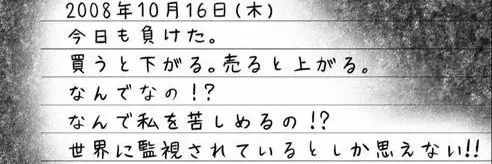 2008年10月16日(木)
今日も負けた。
買うと下がる。売ると上がる。
なんでなの!?
なんで私を苦しめるの!?
世界に監視されているとしか思えない!!